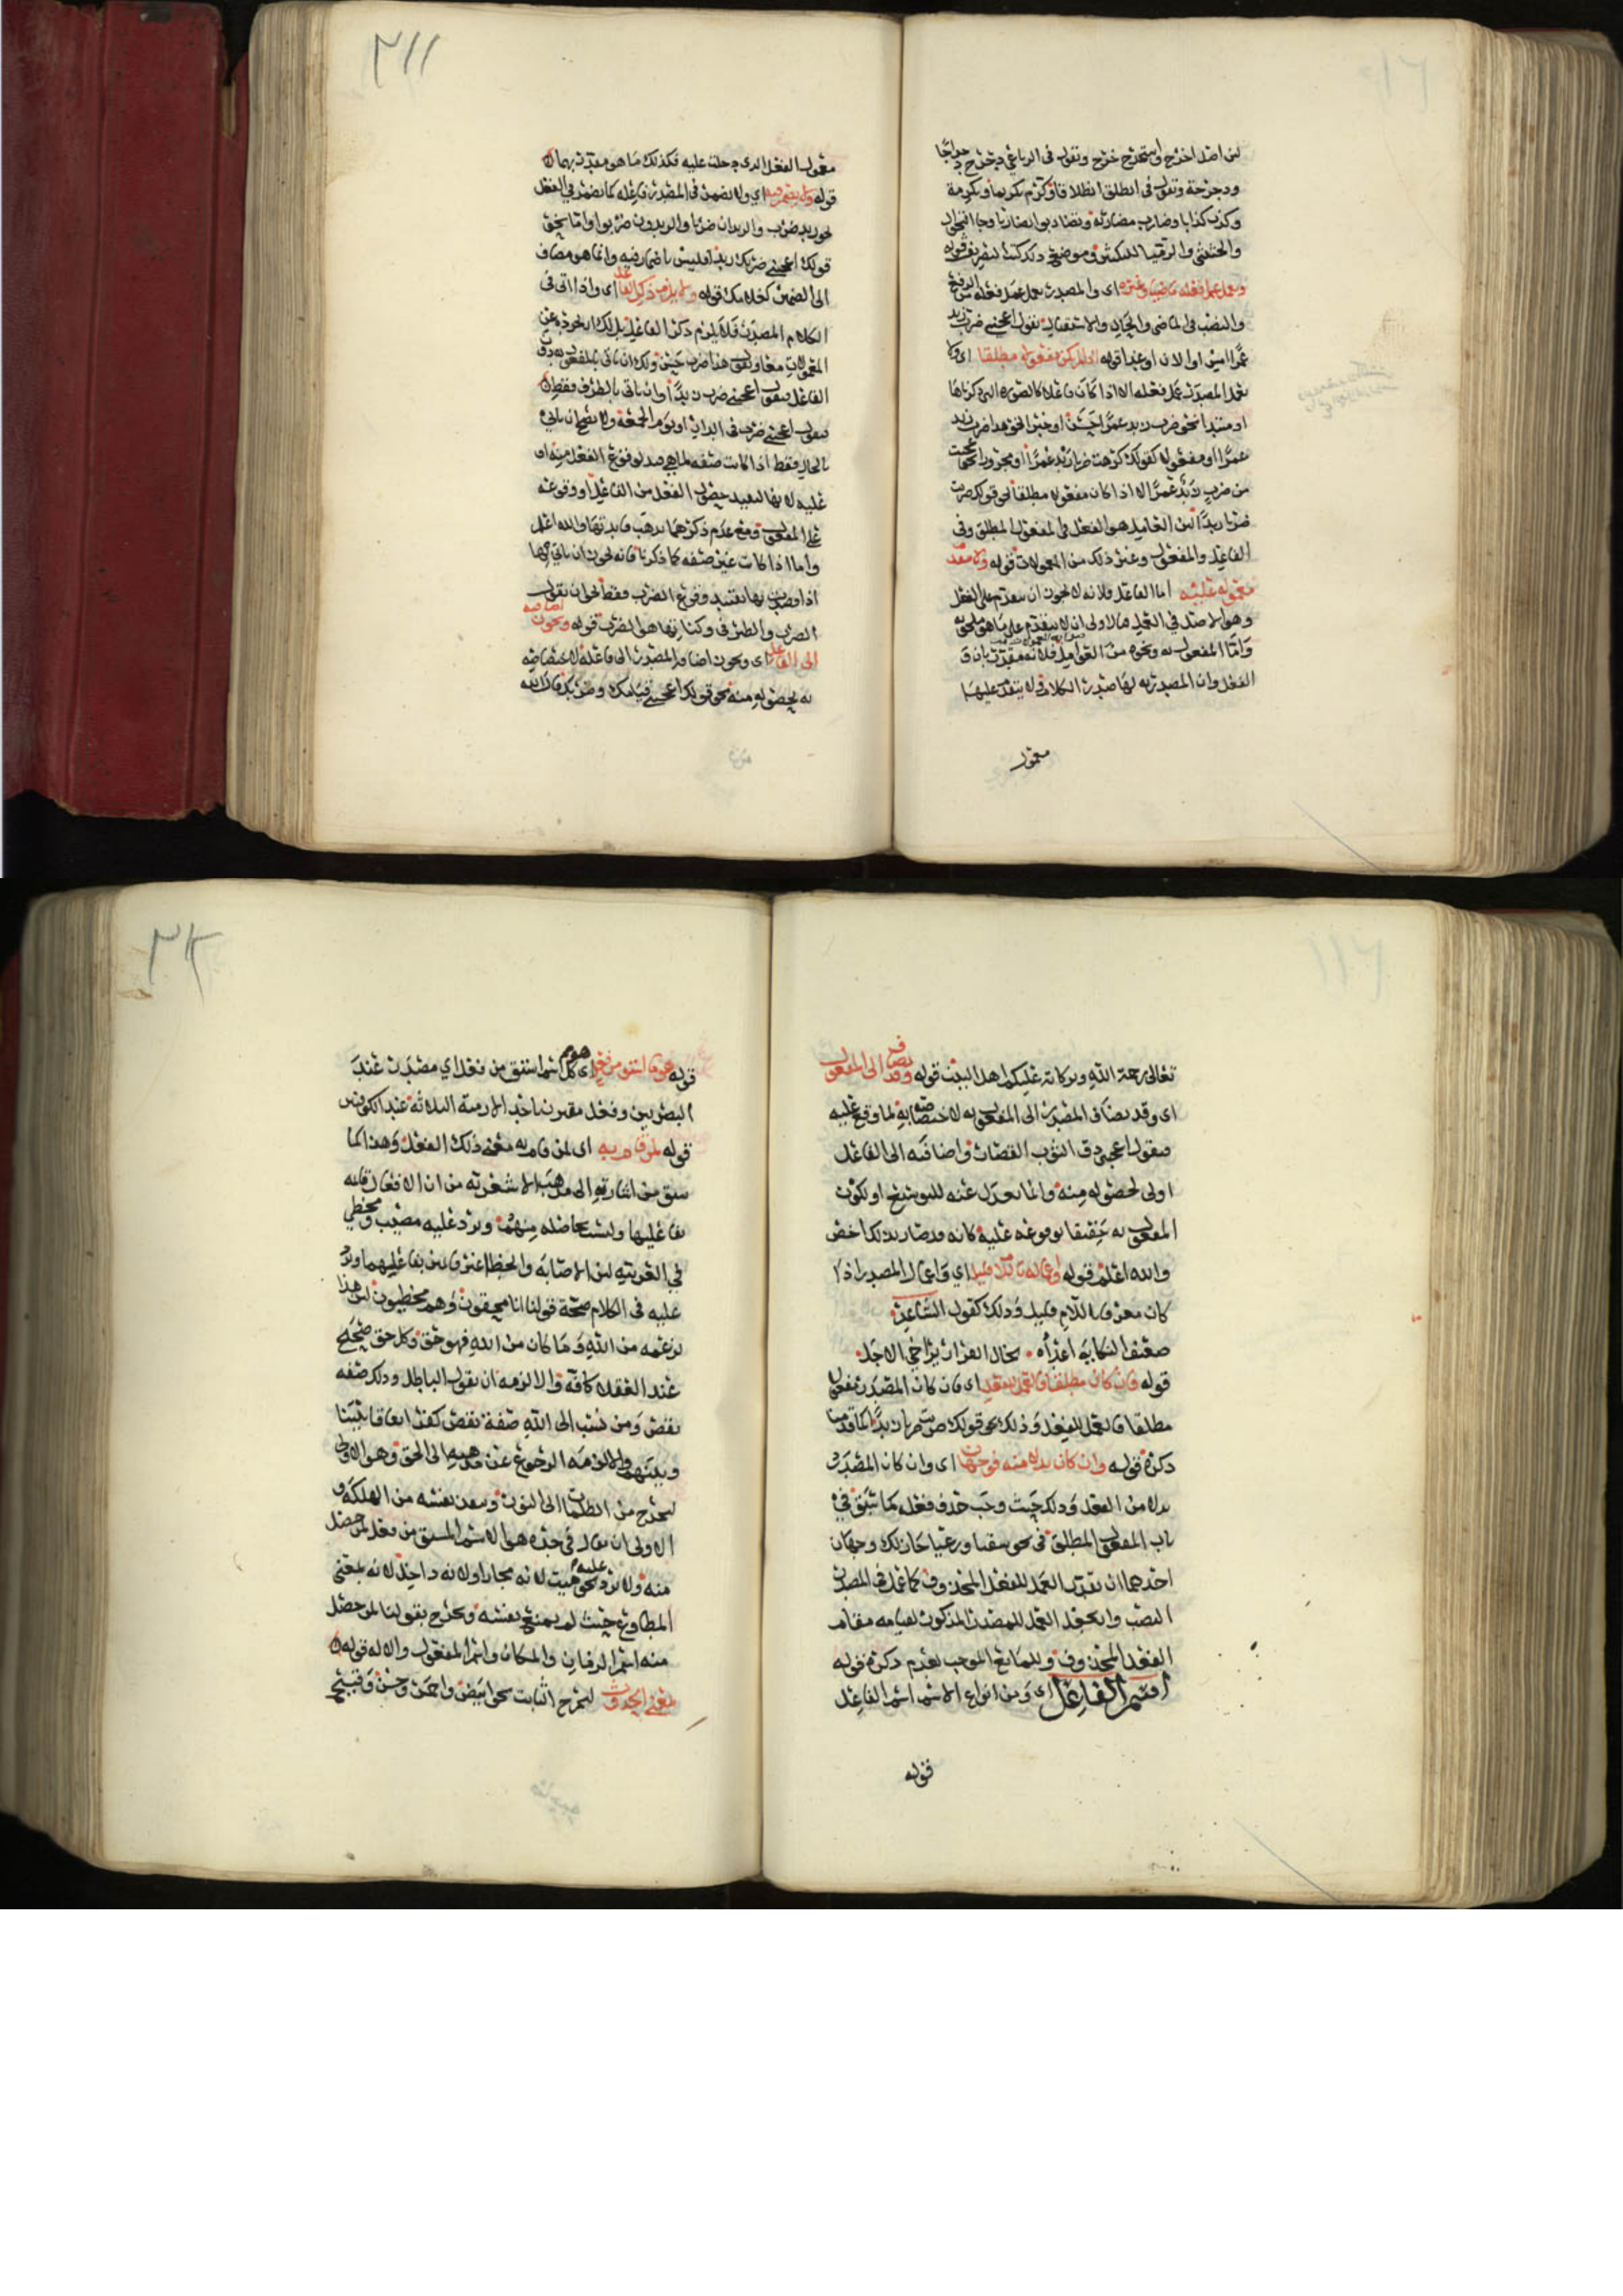 لان اصل اخرج واستخرج خرج وتقول في الرباعي دحرج دحراجا
ودحرجة وتقول في انطلق انطلاقا وكرم تكريما وتكرمة
وكذب كذابا وضارب مضاربة
والرميا للتكثير وموضع ذلك كتب التصريف قوله
ويعمل عمل فعله ماضيا وغيره اي والمصدر يعمل عمل فعله من الرفع
والنصب في الماضي والحال والاستقبال تقول اعجبني ضرب زيد
عمرًا امس او الان او غدا قوله اذا لم يكن مفعولا مطلقا اي ولا
يعمل المصدر عمل فعله الا اذا كان فاعلا كالصورة التي ذكرناها
او مبتدا نحو ضرب زيد عمرًا حسن او خبرا نحو هذا ضرب زيد
عمرًا او مفعولا كقولك كرهت ضرب زيد عمرًا او مجرورا نحو عجبت
من ضرب زيد عمرًا الا اذا كان مفعولا مطلقا نحو قولك ضربت
ضربا زيدًا لان العامل هو الفعل في المفعول المطلق وفي
الفاعل والمفعول وغير ذلك من المعمولات قوله ولا يتقدم
معموله عليه اما الفاعل فلانه لا يجوز ان يتقدم على الفعل
وهو الاصل في العمل فالاولى ان لا يتقدم على ما هو ملحق به
واما المفعول به ونحوه من العوامل فلانه مقدر بان و
الفعل وان المصدرية لها صدر الكلام فلا يتقدم عليها
معمول
٣١١
معمول الفعل الذي دخلت عليه فكذلك ما هو مقدر بها
قوله ولا يضمر فيه اي ولا يضمر في المصدر فاعله كما يضمر في الفعل
نحو زيد ضرب والزيدان ضربا والزيدون ضربوا واما نحو
قولك اعجبني ضربك زيدا فليس باضمار فيه وانما هو مضاف
الى الضمير كغلامك قوله ولا يلزم ذكر الفاعل اي واذا اتى في
الكلام المصدر فلا يلزم ذكر الفاعل بل لك ان تجرده عن
المعمولات معا وتقول هذا ضرب حسن ولك ان تاتي بالمفعول به دون
الفاعل فتقول اعجبني ضرب زيدًا وان تاتي بالظرف فقط
فتقول اعجبني ضرب في الدار او يوم الجمعة ولا يصح ان ياتي
بالحال فقط اذا كانت صفة لما هي قيد لوقوع الفعل منه او
عليه لانها لتقييد حصول الفعل من الفاعل او وقوعه
على المفعول ومع عدم ذكرهما يذهب فايدتها والله اعلم
واما اذا كانت غير صفة كما ذكرنا فانه يجوز ان ياتي بها
اذا قصدت بها تقييد وقوع الضرب فقط نحو ان تقول
الضرب والظرف وكنايتها هو الضرب قوله ويجوز اضافته
الى الفاعل اي ويجوز اضافة المصدر الى فاعله لاختصاصه
به لحصوله منه نحو قولك اعجبني قيامك وضربك قال الله
تعالى رحمة الله وبركاته عليكم اهل البيت قوله وقد يضاف الى المفعول
اي وقد يضاف المصدر الى المفعول به لاختصاصه به لما وقع عليه
فتقول اعجبني دق الثوب القصار واضافته الى الفاعل
اولى لحصوله منه وانما يعدل عنه للتوسيع او لكون
المفعول به حقيقا بوقوعه عليه كانه قد صار بذلك اخص
والله اعلم قوله واعماله باللام قليل اي واعمال المصدر اذا
كان معرفا باللام قليل وذلك كقول الشاعر
ضعيف النكاية اعداه يخال الفرار يراخي الاجل
قوله فان كان مطلقا فالعمل للفعل اي فان كان المصدر مفعولا
مطلقا فالعمل للفعل وذلك نحو قولك ضربت ضربا زيدًا كما قدمنا
ذكره قوله وان كان بدلا منه فوجهان اي وان كان المصدر
بدلا من الفعل وذلك حيث وجب حذف فعله كما سبق في
باب المفعول المطلق في نحو سقيا ورعيا جاز لك وجهان
احدهما ان تقدر العمل للفعل المحذوف كما عمل في المصدر
النصب وان تجعل العمل للمصدر المذكور لقيامه مقام
الفعل المحذوف وللمانع الموجب لعدم ذكره قوله
اسم الفاعل اي ومن انواع الاسم اسم الفاعل
قوله
٣١٢
قوله هو ما اشتق من فعل اي كل اسم اشتق من فعل اي مصدر عند
البصريين وفعل مقترن باحد الازمنة الثلاثة عند الكوفيين
قوله لمن قام به اي لمن قام به معنى ذلك الفعل وهذا كما
سبق من اشارته الى مذهب الاشعرية من ان الافعال قائمة
بفاعليها وليست حاصلة منهم ويرد عليه مصيب ومخطي
في العربية لان الاصابة والخطا غير قائمين بفاعليهما ويرد
عليه في الكلام صحة قولنا انا محقون وهم مخطيون لان هذا
بزعمه من الله وما كان من الله فهو حق وكل حق صحيح
عند العقلا كافة والا لزمه ان يقول الباطل وذلك صفة
نقص ومن نسب الى الله صفة نقص كفر اتفاقا بيننا
وبينهم والا لزمه الرجوع عن مذهبه الى الحق وهو الاولى
ليخرج من الظلمات الى النور وينقذ نفسه من الهلكة و
الاولى ان يقال في حده هو الاسم المشتق من فعل لمن حصل
منه ولا يرد عليه نحو ميت لانه مجاز او لانه داخل لانه بمعنى
المطاوع حيث لم يمتنع بنفسه ويخرج بقولنا لمن حصل
منه اسم الزمان والمكان واسم المفعول والالة قوله
بمعنى الحدوث ليخرج الثابت نحو ابيض واحمر وحسن وقبيح